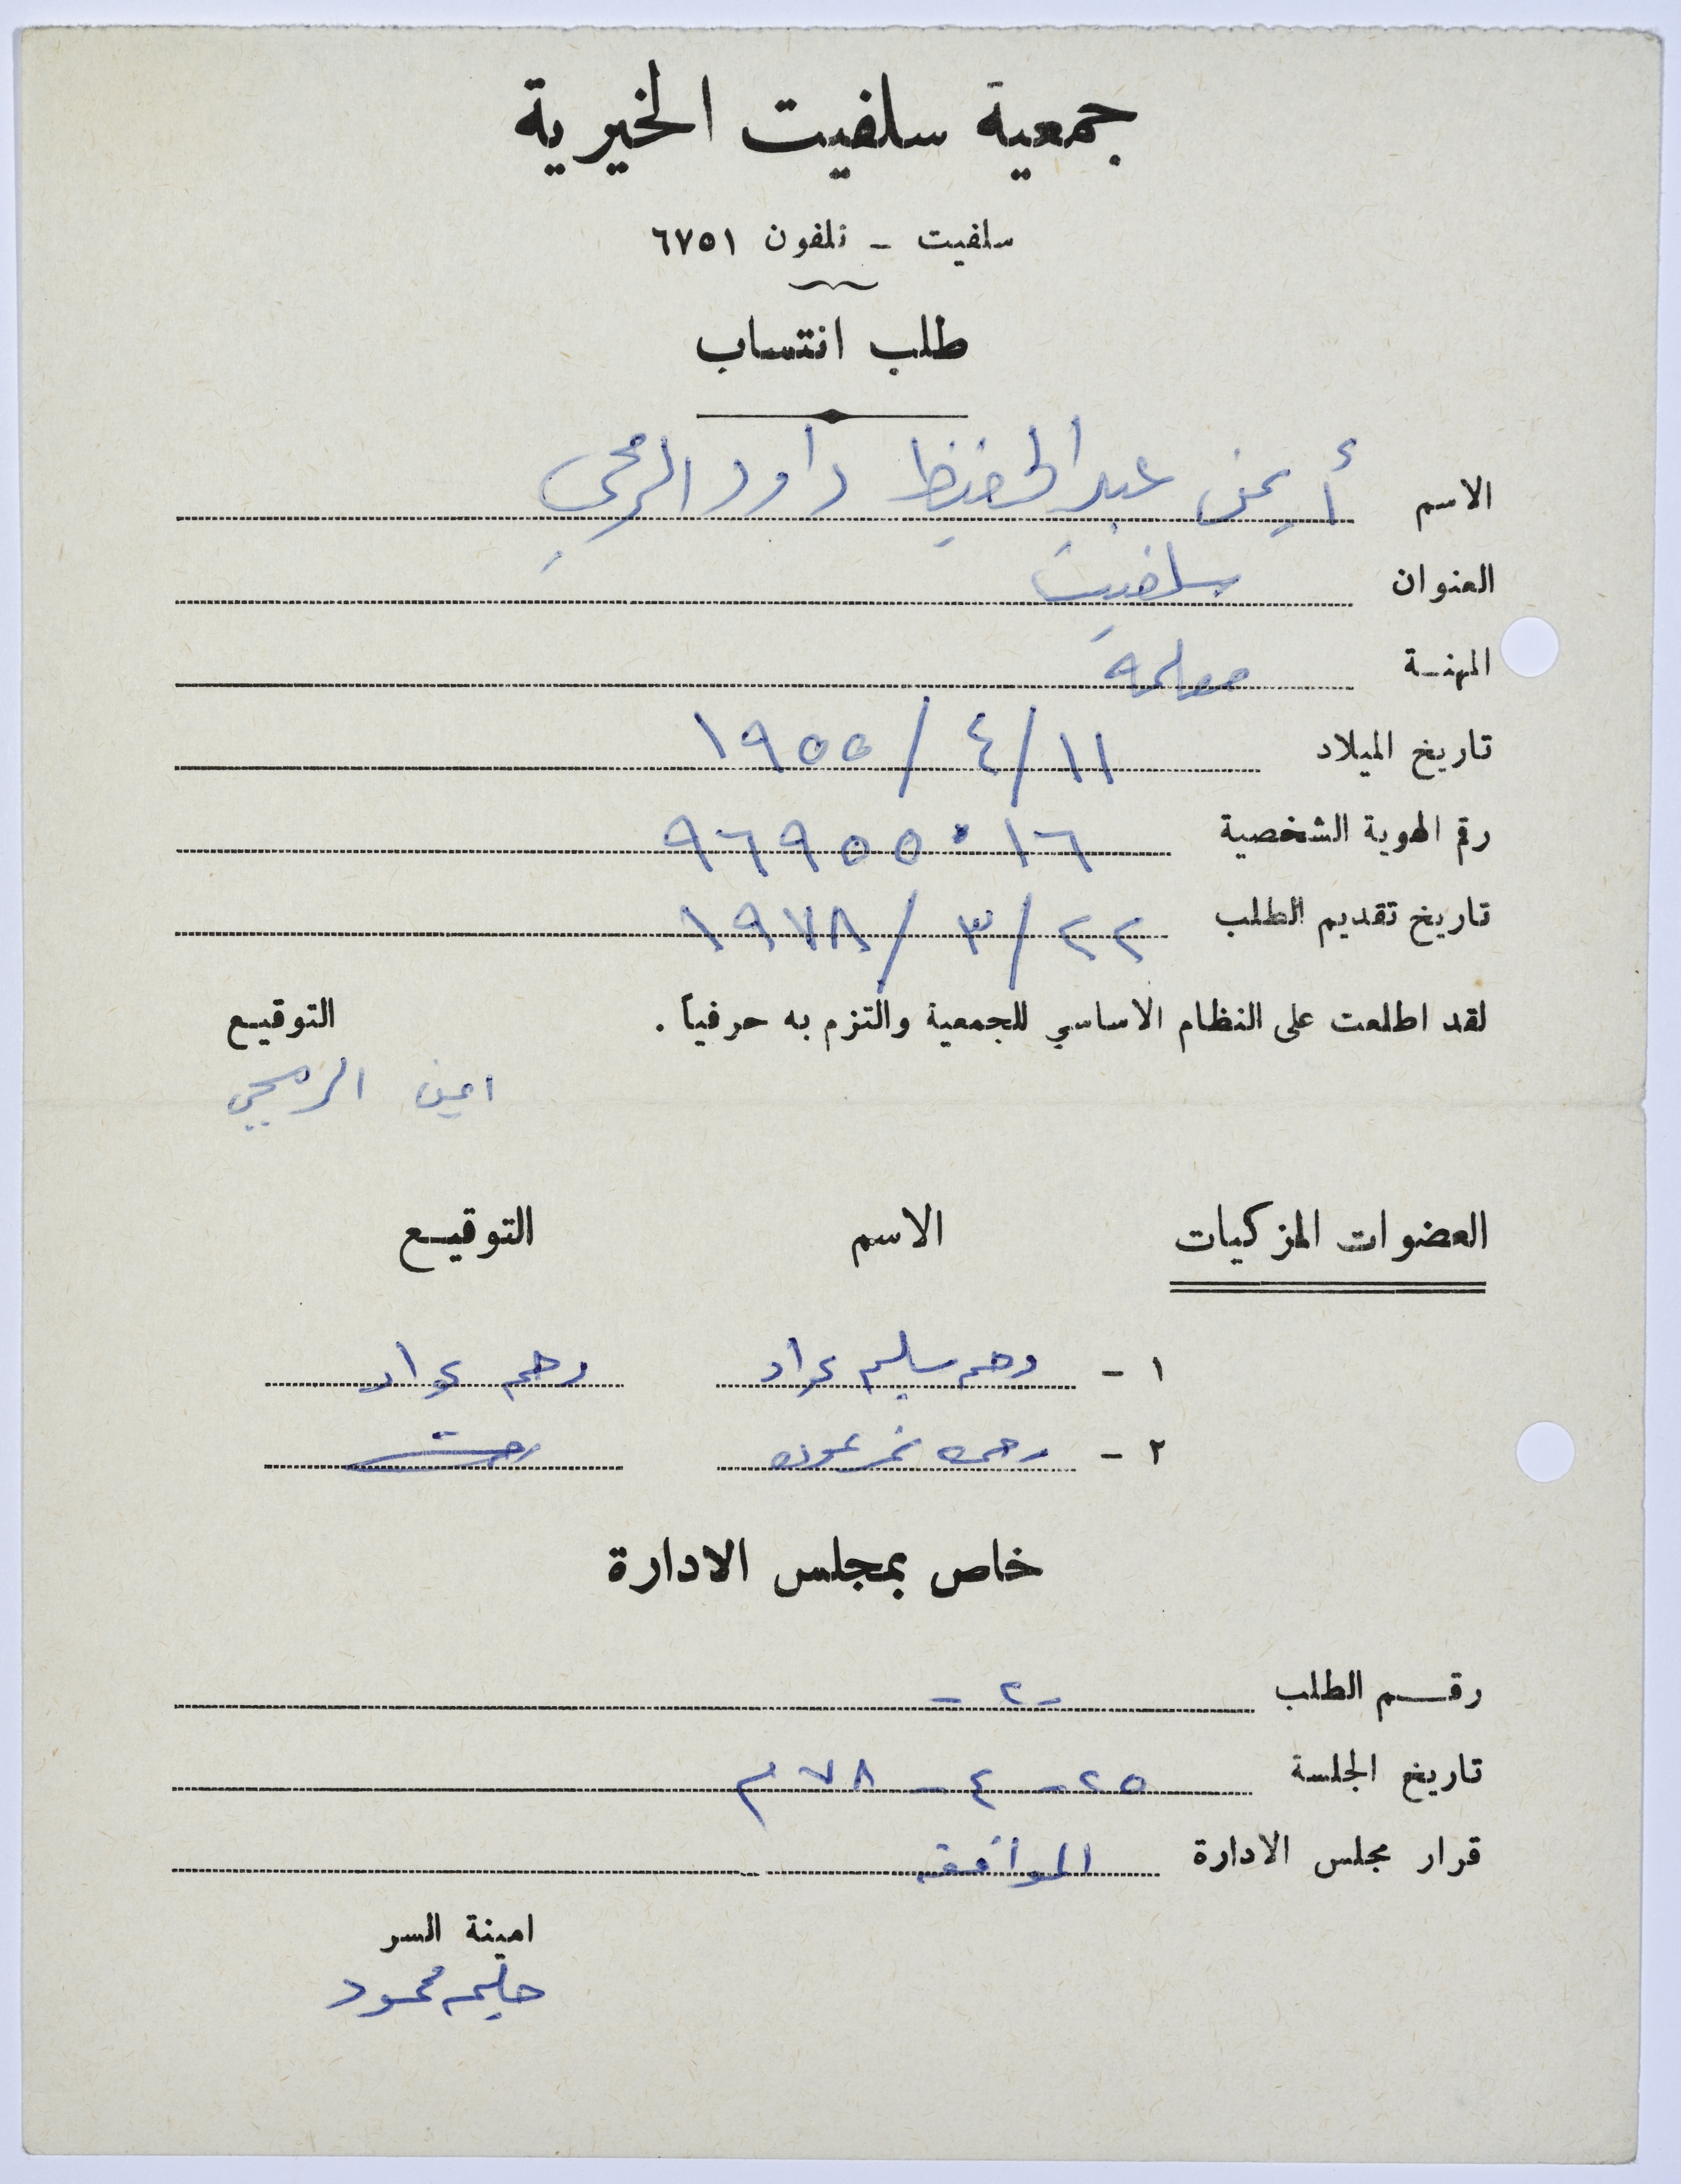 جمعية سلفيت الخيرية
سلفيت - تلفون ٦٧٥١
طلب انتساب
الاسم أيمن عبد الحفيظ داود الرمحي
العنوان سلفيت
المهنة معلمة
تاريخ الميلاد ١١/٤/١٩٥٥
رقم الهوية الشخصية ٩٦٩٥٥٠١٦
تاريخ تقديم الطلب ٢٢/٣/١٩٧٨
لقد اطلعت على النظام الاساسي للجمعية والتزم به حرفياً . التوقيع
الرمحي
العضوات المزكيات الاسم التوقيع
١ - سليم عواد عواد
٢ - نمر
خاص بمجلس الادارة
رقم الطلب - ٢ -
تاريخ الجلسة ٢٥ - ٤ - ٧٨ م
قرار مجلس الادارة الموافقه
امينة السر
حليمه محمود